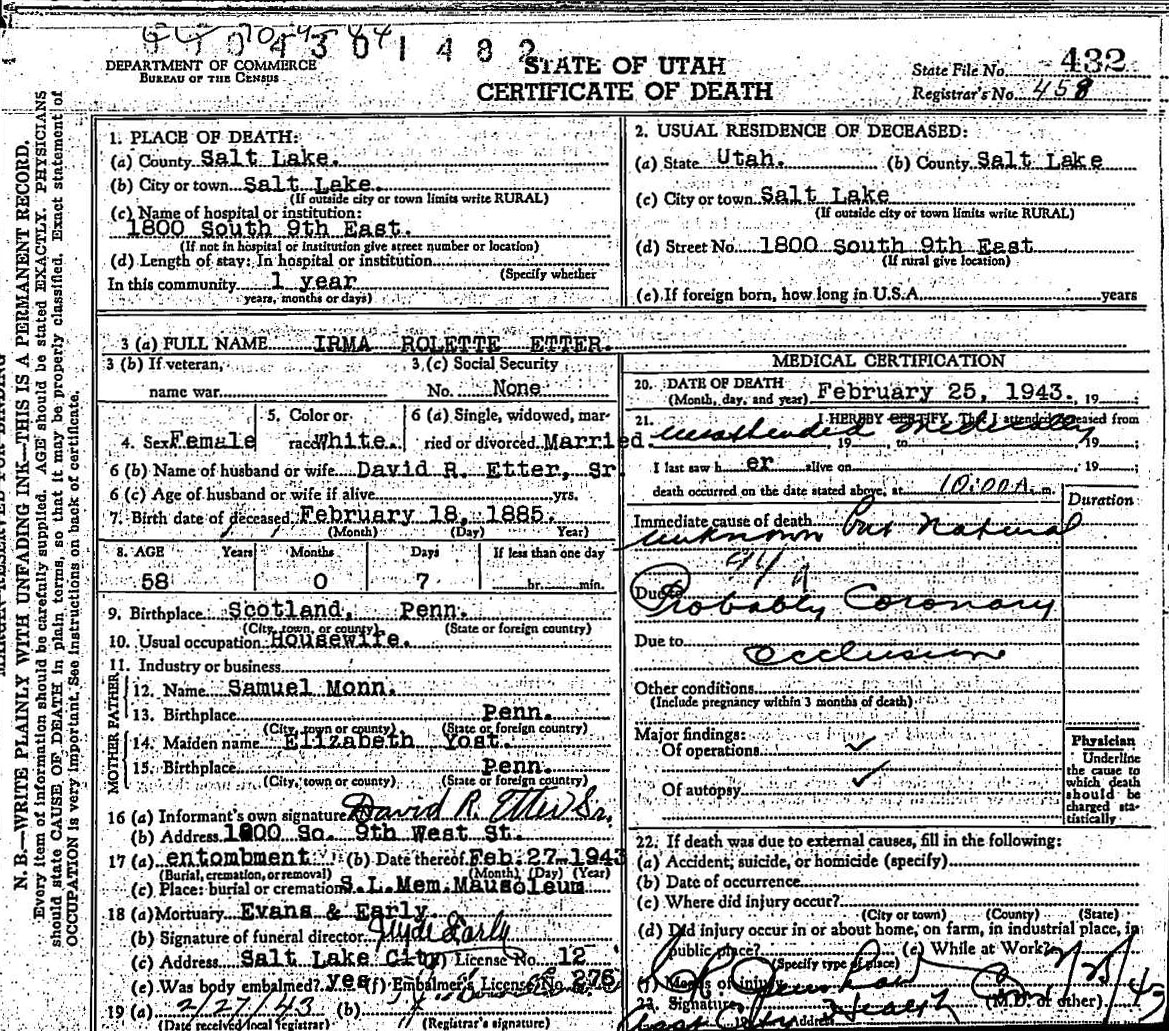 0 4 3 0 1 4 8 2
DEPARTMENT OF COMMERCE
BUREAU OF THE CENSUS
STATE OF UTAH
CERTIFICATE OF DEATH
State File No. 432
Registrar's No. 458
MARGIN RESERVED FOR BINDING
N. B.—WRITE PLAINLY WITH UNFADING INK—THIS IS A PERMANENT RECORD.
Every item of information should be carefully supplied. AGE should be stated EXACTLY. PHYSICIANS
should state CAUSE OF DEATH in plain terms, so that it may be properly classified. Exact statement of
OCCUPATION is very important. See instructions on back of certificate.
1. PLACE OF DEATH:
(a) County Salt Lake.
(b) City or town Salt Lake.
(If outside city or town limits write RURAL)
(c) Name of hospital or institution:
1800 South 9th East.
(If not in hospital or institution give street number or location)
(d) Length of stay: In hospital or institution
(Specify whether
In this community 1 year
years, months or days)
2. USUAL RESIDENCE OF DECEASED:
(a) State Utah. (b) County Salt Lake
(c) City or town Salt Lake
(If outside city or town limits write RURAL)
(d) Street No. 1800 South 9th East
(If rural give location)
(e) If foreign born, how long in U.S.A. years
3 (a) FULL NAME IRMA ROLETTE ETTER.
3 (b) If veteran, 3 (c) Social Security
name war No. None
4. Sex Female 5. Color or race White. 6 (a) Single, widowed, married or divorced Married.
6 (b) Name of husband or wife David R. Etter, Sr
6 (c) Age of husband or wife if alive yrs.
7. Birth date of deceased February 18, 1885.
(Month) (Day) Year)
8. AGE Years Months Days If less than one day
58 0 7 hr. min.
9. Birthplace Scotland, Penn.
(City, town, or county) (State or foreign country)
10. Usual occupation Housewife.
11. Industry or business
FATHER
12. Name Samuel Monn.
13. Birthplace Penn.
(City, town or county) (State or foreign country)
MOTHER
14. Maiden name Elizabeth Yost.
15. Birthplace Penn.
(City, town or county) (State or foreign country)
16 (a) Informant's own signature David R. Etter Sr.
(b) Address 1800 So. 9th West St.
17 (a) entombment (b) Date thereof Feb. 27 1943
(Burial, cremation, or removal) (Month) (Day) (Year)
(c) Place: burial or cremation S.L. Mem. Mausoleum
18 (a) Mortuary Evans & Early.
(b) Signature of funeral director Clyde Early
(c) Address Salt Lake City License No. 12
(e) Was body embalmed? yes (f) Embalmer's License No. 276
19 (a) 2/27/43 (b)
(Date received local registrar) (Registrar's signature)
MEDICAL CERTIFICATION
20. DATE OF DEATH
(Month, day, and year) February 25, 1943. , 19 ;
21. I HEREBY CERTIFY, That I attended deceased from
unattended medically , 19 to , 19 ;
I last saw h er alive on , 19 ;
death occurred on the date stated above, at 10:00 A. m.
Duration
Immediate cause of death
unknown but Natural
94 A
Due to
Probably Coronary
Due to
occlusion
Other conditions
(Include pregnancy within 3 months of death)
Major findings:
Of operations ✓
Of autopsy ✓
Physician
Underline
the cause to
which death
should be
charged sta-
tistically
22. If death was due to external causes, fill in the following:
(a) Accident, suicide, or homicide (specify)
(b) Date of occurrence
(c) Where did injury occur?
(City or town) (County) (State)
(d) Did injury occur in or about home, on farm, in industrial place, in
public place? (e) While at Work?
(Specify type of place)
(f) Means of injury 2/25/43
23. Signature (M.D. or other)
Asst City Health
Address